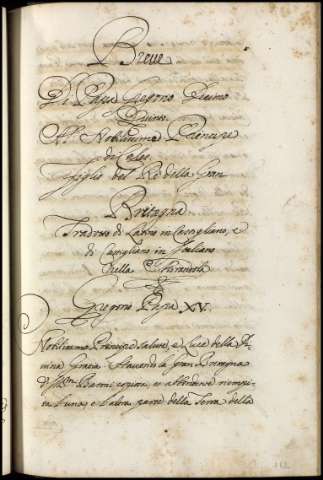 Breue
Di Papa Gregorio Decimo
Quinto
Al Nobilissimo Prencipe
di Gales
figlio del Rè della Gran
Bretagna
Tradotto di Latino in Castigliano, e
di Castigliano in Italiano
Dalla
Gregorio Papa XV.
Nobilissimo Prencipe salute, e Luce della
uina Grazia. Hauendo la Gran Bretagna
empi-
l'una, e l'altra parte della Terra della